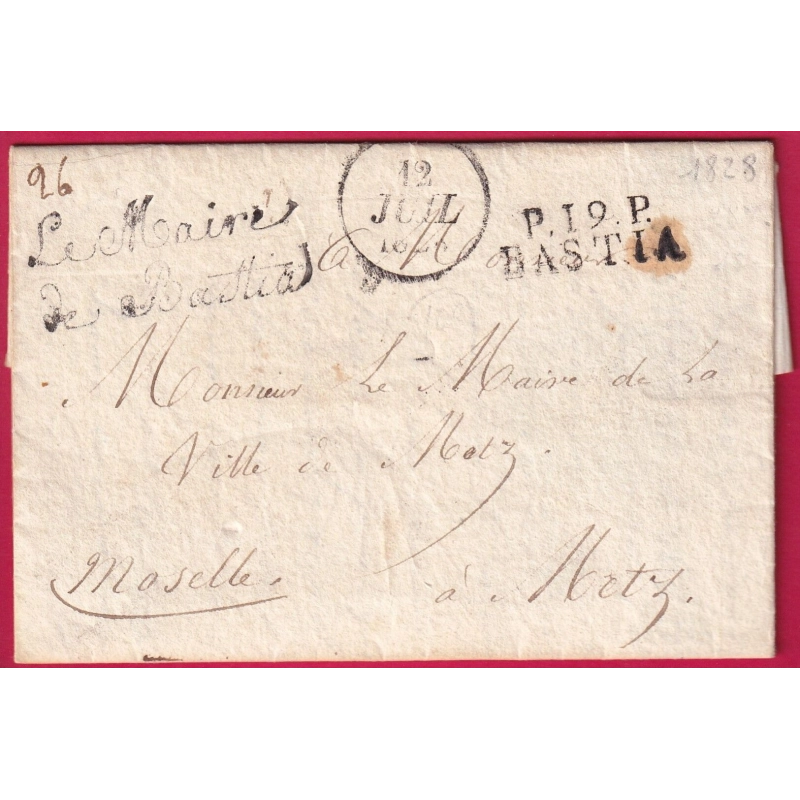 96
Le Maire
de Bastia
12
JUIL
1828
1828
P.19.P.
BASTIA
à Monsieur
Monsieur Le Maire de La
Ville de Metz.
Moselle.
à Metz.